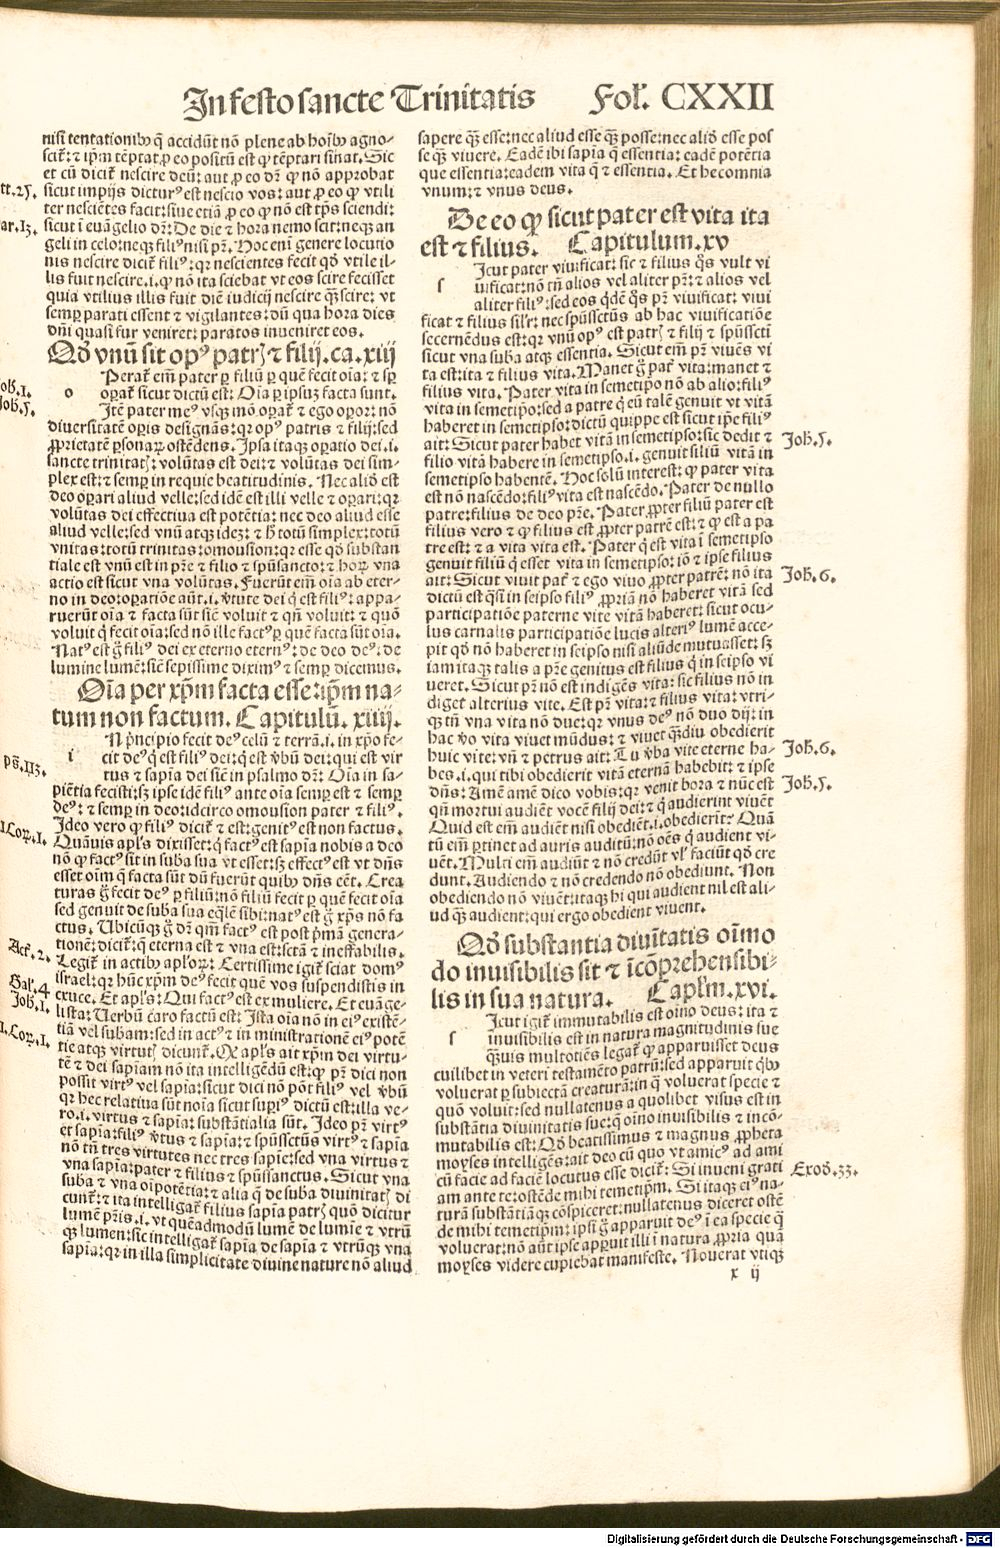 In festo sancte Trinitatis Fol̃. CXXII
nisi tentationibꝰ q̃ accidũt nõ plene ab hoĩbꝰ agno⸗
scit̃: ⁊ ip̃m tẽptat, ꝓ eo positũ est ꝙ tẽptari sinat. Sic
et cũ dicit̃ nescire deũ: aut ꝓ eo dr̃ ꝙ nõ approbat
sicut impijs dicturꝰ est nescio vos: aut ꝓ eo ꝙ vtili
ter nesciẽtes facit: siue etiã ꝓ eo ꝙ nõ est tp̃s sciendi:
sicut ĩ euãgelio dr̃: De die ⁊ hora nemo scit: neqꝫ an
geli in celo: neqꝫ filiꝰ nisi pr̃. Hoc eni᷒ genere locutio
nis nescire dicit̃ filiꝰ: qr nescientes fecit qđ vtile il⸗
lis fuit nescire .i. ꝙ nõ ita sciebat vt eos scire fecisset
quia vtilius illis fuit diẽ iudicij nescire q̃ꝫ scire: vt
semꝑ parati essent ⁊ vigilantes: dũ qua hora dies
dñi quasi fur veniret: paratos inueniret eos.
Qđ vnũ sit opꝰ patrꝭ ⁊ filij. ca. xiij
Perat̃ em̃ pater ꝑ filiũ ꝑ quẽ fecit oĩa: ⁊ sꝑ
o oꝑat̃ sicut dictũ est: Oĩa ꝑ ipsuꝫ facta sunt.
Itẽ pater meꝰ vsqꝫ mõ oꝑat̃ ⁊ ego oꝑor: nõ
diuersitatẽ oꝑis designãs: qr opꝰ patris ⁊ filij: sed
ꝓprietatẽ ꝑsonaꝝ ostẽdens. Ipsa itaqꝫ oꝑatio dei .i.
sancte trinitatꝭ: volũtas est dei: ⁊ volũtas dei sim⸗
plex est: ⁊ semꝑ in requie beatitudinis. Nec aliđ est
deo oꝑari aliud velle: sed idẽ est illi velle ⁊ oꝑari: qr
volũtas dei effectiua est potẽtia: nec deo aliud esse
aliud velle: sed vnũ atqꝫ ideꝫ: ⁊ h̃ totũ simplex: totũ
vnitas: totũ trinitas: omousion: qr esse qđ substan
tiale est vnũ est in pr̃e ⁊ filio ⁊ spũsancto: ⁊ hoꝝ vna
actio est sicut vna volũtas. Fuerũt em̃ oĩa ab eter⸗
no in deo: oꝑatiõe aũt .i. v̓tute dei q̓ est filiꝰ: appa⸗
ruerũt oĩa ⁊ facta sũt sic̃ voluit ⁊ qñ voluit: ⁊ quõ
voluit q̓ fecit oĩa: sed nõ ille factꝰ ꝑ quẽ facta sũt oĩa.
Natꝰ est g̃ filiꝰ dei ex eterno eternꝰ: de deo deꝰ: de
lumine lumẽ: sic̃ sepissime diximꝰ ⁊ semꝑ dicemus.
Oĩa per xp̃m facta esse: ip̃m na⸗
tum non factum. Capitulũ. xiiij.
N pṙncipio fecit deꝰ celũ ⁊ terrã .i. in xp̃o fe⸗
i cit deꝰ q̓ est filiꝰ dei: q̓ est v̓bũ dei: qui est vir
tus ⁊ sapĩa dei sic̃ in psalmo dr̃: Oĩa in sa⸗
piẽtia fecisti: sꝫ ipse idẽ filiꝰ ante oĩa semꝑ est ⁊ semꝑ
deꝰ: ⁊ semꝑ in deo: idcirco omousion pater ⁊ filiꝰ.
Ideo vero ꝙ filiꝰ dicit̃ ⁊ est: genitꝰ est non factus.
Quãuis apl̃s dixisset: q̓ factꝰ est sapĩa nobis a deo
nõ ꝙ factꝰ sit in suba sua vt esset: sꝫ effectꝰ est vt dñs
esset oĩm q̃ facta sũt dũ fuerũt quibꝰ dñs eẽt. Crea
turas g̃ fecit deꝰ ꝑ filiũ: nõ filiũ fecit ꝑ quẽ fecit oĩa
sed genuit de suba sua eq̃lẽ sibi: natꝰ est g̃ xp̃s nõ fa
ctus. Ubicũqꝫ g̃ dr̃ qm̃ factꝰ est post pṙmã genera⸗
tionẽ: dicit̃: q̓ eterna est ⁊ vna est: sctã ⁊ ineffabilis.
Legit̃ in actibꝰ apl̃oꝝ: Certissime igit̃ sciat domꝰ
israel: qr hũc xp̃m deꝰ fecit quẽ vos suspendistis in
cruce. Et apl̃s: Qui factꝰ est ex muliere. Et euãge⸗
lista: Uerbũ caro factũ est: Ista oĩa nõ in eiꝰ existẽ⸗
tiã vel subam: sed in actꝰ ⁊ in ministrationẽ eiꝰ potẽ
tie atqꝫ virtutꝭ dicunt̃. Qđ apl̃s ait xp̃m dei virtu⸗
tẽ ⁊ dei sapiam nõ ita intelligẽdũ est: ꝙ pr̃ dici non
possit virtꝰ vel sapĩa: sicut dici nõ põt filiꝰ vel v̓bũ
qr hec relatiua sũt noĩa sicut supṙ dictũ est: illa ve⸗
ro .i. virtus ⁊ sapĩa: substãtialia sũt. Ideo pr̃ virtꝰ
et sapĩa: filiꝰ v̓tus ⁊ sapĩa: ⁊ spũssctũs virtꝰ ⁊ sapĩa
nõ tñ tres virtutes nec tres sapiẽ: sed vna virtus ⁊
vna sapĩa: pater ⁊ filius ⁊ spũssanctus. Sicut vna
suba ⁊ vna oĩpotẽtia: ⁊ alia q̃ de suba diuinitatꝭ di
cunt̃: ⁊ ita intelligat̃ filius sapĩa patrꝭ quõ dicitur
lumẽ pr̃is .i. vt quẽadmodũ lumẽ de lumĩe ⁊ vtrũ
qꝫ lumen: sic intelligat̃ sapĩa de sapĩa ⁊ vtrũqꝫ vna
sapĩa: qr in illa simplicitate diuine nature nõ aliud
tt. 25.
ar. 13.
oh̃. 1.
Joh̃. 5.
pš. 113.
1. Coꝝ. 1.
Act̃. 2.
Gal̃. 4
Joh̃. 1.
1. Coꝝ. 1.
sapere q̃ꝫ esse: nec aliud esse q̃ꝫ posse: nec aliđ esse pos
se q̃ꝫ viuere. Eadẽ ibi sapĩa q̃ essentia: eadẽ potẽtia
que essentia: eadem vita q̃ ⁊ essentia. Et hec omnia
vnum: ⁊ vnus deus.
De eo ꝙ sicut pater est vita ita
est ⁊ filius. Capitulum. xv
Icut pater viuificat: sic ⁊ filius q̃s vult vi
s uificat: nõ tñ alios vel aliter pr̃: ⁊ alios vel
aliter filiꝰ: sed eos q̓dẽ q̃s pr̃ viuificat: viui
ficat ⁊ filius sil̃r: nec spũssctũs ab hac viuificatiõe
secernẽdus est: qr vnũ opꝰ est patrꝭ ⁊ filij ⁊ spũssctĩ
sicut vna suba atqꝫ essentia. Sicut em̃ pr̃ viuẽs vi
ta est: ita ⁊ filius vita. Manet g̃ pat̃ vita: manet ⁊
filius vita. Pater vita in semetip̃o nõ ab alio: filiꝰ
vita in semetip̃o: sed a patre q̓ eũ talẽ genuit vt vitã
haberet in semetipso: dictũ quippe est sicut ip̃e filiꝰ
ait: Sicut pater habet vitã in semetipso: sic dedit ⁊
filio vitã habere in semetipso .i. genuit filiũ vitã in
semetipso habentẽ. Hoc solũ interest: ꝙ pater vita
est nõ nascẽdo: filiꝰ vita est nascẽdo. Pater de nullo
patre: filius de deo pr̃e. Pater ꝓpter filiũ pater est
filius vero ⁊ ꝙ filius est ꝓpter patrẽ est: ⁊ ꝙ est a pa
tre est: ⁊ a vita vita est. Pater q̓ est vita ĩ semetipso
genuit filiũ q̓ esset vita in semetipso: iõ ⁊ ipse filius
ait: Sicut viuit pat̃ ⁊ ego viuo ꝓpter patrẽ: nõ ita
dictũ est q̃si in seipso filiꝰ ꝓpriã nõ haberet vitã sed
participatiõe paterne vite vitã haberet: sicut ocu⸗
lus carnalis participatiõe lucis alteriꝰ lumẽ acce⸗
pit qđ nõ haberet in seipso nisi aliũde mutuasset: sꝫ
iam itaqꝫ talis a pr̃e genitus est filius q̓ in seipso vi
ueret. Sicut pr̃ nõ est indigẽs vita: sic filius nõ in
diget alterius vite. Est pr̃ vita: ⁊ filius vita: vtri⸗
qꝫ tñ vna vita nõ due: qr vnus deꝰ nõ duo dij: in
hac v̓o vita viuet mũdus: ⁊ viuet q̃ꝫdiu obedierit
huic vite: vñ ⁊ petrus ait: Tu v̓ba vite eterne ha⸗
bes .i. qui tibi obedierit vitã eternã habebit: ⁊ ipse
dñs: Amẽ amẽ dico vobis: qr venit hora ⁊ nũc est
qñ mortui audiẽt vocẽ filij dei: ⁊ q̓ audierint viuẽt
Quid est em̃ audiẽt nisi obediẽt .i. obedierit: Quã
tũ em̃ ꝑtinet ad auris auditũ: nõ oẽs q̓ audiẽt vi⸗
uẽt. Multi em̃ audiũt ⁊ nõ credũt vl̃ faciũt qđ cre
dunt. Audiendo ⁊ nõ credendo nõ obediunt. Non
obediendo nõ viuẽt: itaqꝫ hi qui audient nil est ali⸗
ud q̃ꝫ audient: qui ergo obedient viuent.
Qđ substantia diuĩtatis oĩmo
do inuisibilis sit ⁊ ĩcõprehensibi⸗
lis in sua natura. Capl̃m. xvi.
Icut igit̃ immutabilis est oĩno deus: ita ⁊
s inuisibilis est in natura magnitudinis sue
q̃ꝫuis multotiẽs legat̃ ꝙ apparuisset deus
cuilibet in veteri testamẽto patrũ: sed apparuit q̃bꝰ
voluerat ꝑ subiectã creaturã: in q̃ voluerat specie ⁊
quõ voluit: sed nullatenus a quolibet visus est in
substãtia diuinitatis sue: q̃ oĩno inuisibilis ⁊ incõ⸗
mutabilis est: Qđ beatissimus ⁊ magnus ꝓpheta
moyses intelligẽs: ait deo cũ quo vt amicꝰ ad ami
cũ facie ad faciẽ locutus esse dicit̃: Si inueni grati
am ante te: ostẽde mihi temetip̃m. Si itaqꝫ eiꝰ na⸗
turã substãtiãqꝫ cõspiceret: nullatenus diceret ostẽ
de mihi temetip̃m: ipsi g̃ apparuit deꝰ ĩ ea specie q̃
voluerat: nõ aũt ipse apꝑuit illi ĩ natura ꝓpria quã
moyses videre cupiebat manifeste. Nouerat vtiqꝫ
Joh̃. 5.
Joh̃. 6.
Joh̃. 6.
Joh̃. 5.
Exođ. 33.
x ij
Digitalisierung gefördert durch die Deutsche Forschungsgemeinschaft - DFG